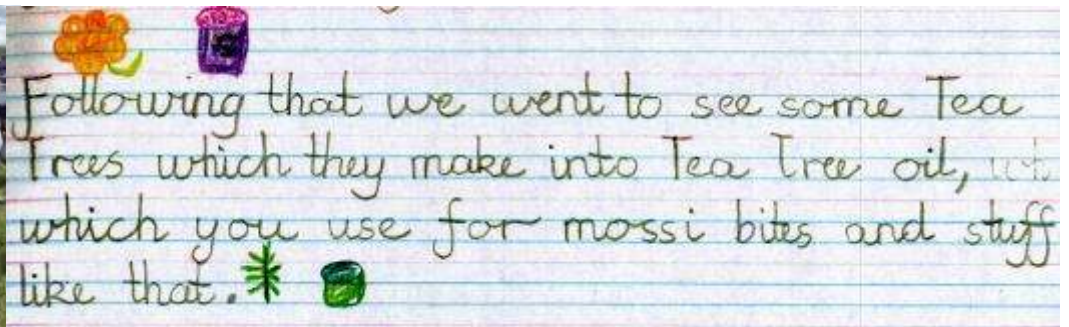 Following that we went to see some Tea
Trees which they make into Tea Tree oil,
which you use for mossi bites and stuff
like that.